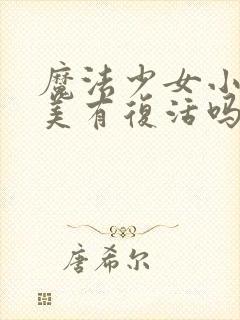 魔法少女小
美有復活吗
唐希尔